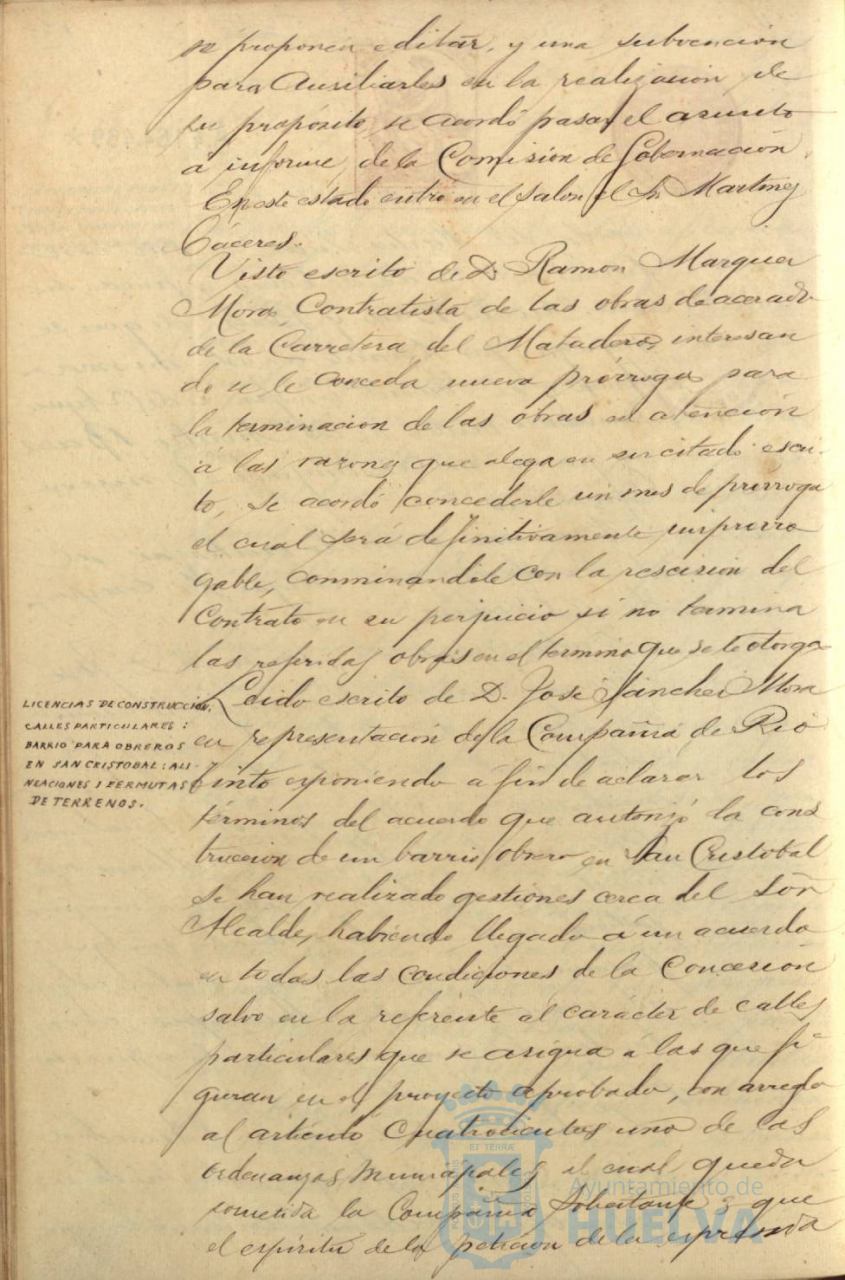 se proponen editar, y una subvención
para Auxiliarles en la realización de
su propósito, se acordó pasar el asunto
a informe de la Comisión de Gobernación.
En este estado entro en el Salon el Sr Martinez
Cáceres.
Visto escrito de Dn Ramon Marquez
Mora Contratista de las obras de acerado
de la Carretera del Matadero, interesan
do se le conceda nueva prórroga para
la terminacion de las obras en atención
á las razones que alega en su citado escri-
to, se acordó concederle un mes de prórroga
el cual será definitivamente improrro
gable, conminandole con la rescisión del
Contrato en su perjuicio si no termina
las referidas obras en el termino que se le otorga
LICENCIAS DE CONSTRUCCION,
CALLES PARTICULARES:
BARRIO PARA OBREROS
EN SAN CRISTOBAL: ALI-
NEACIONES I PERMUTAS
DE TERRENOS.
Leido escrito de D. José Sánchez Mora
en representación de la Compañia de Rio
tinto exponiendo á fin de aclarar los
términos del acuerdo que autorizó la cons
truccion de un barrio obrero en San Cristobal
se han realizado gestiones cerca del Señr
Alcalde, habiendo llegado á un acuerdo
en todas las condiciones de la Concesión
salvo en la referente al carácter de calles
particulares que se asigna á las que fi-
guran en el proyecto aprobado, con arreglo
al artículo Cuatrocientos uno de las
Ordenanzas Municipales al cual queda
sometida la Compañia Solicitante; que
el espíritu de la petición de la expresada
Ayuntamiento de
HUELVA